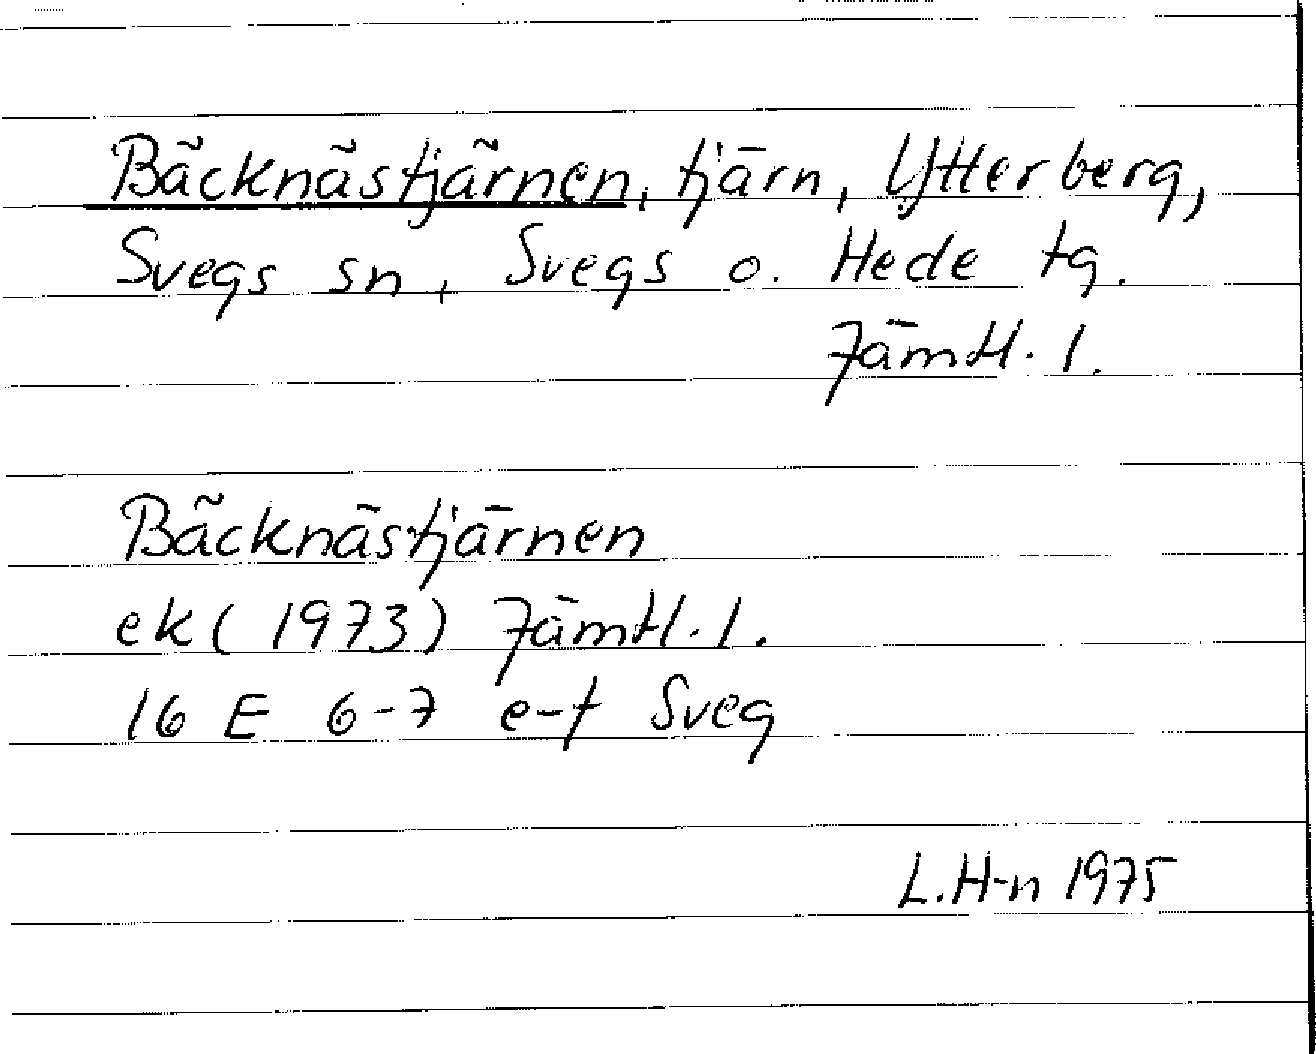 Bäcknästjärnen, tjärn, Ytterberg,
Svegs sn, Svegs o. Hede tg.
Jämtl. l.
Bäcknästjärnen
ek (1973) Jämtl. l.
16 E 6-7 e-f Sveg
L. H-n 1975